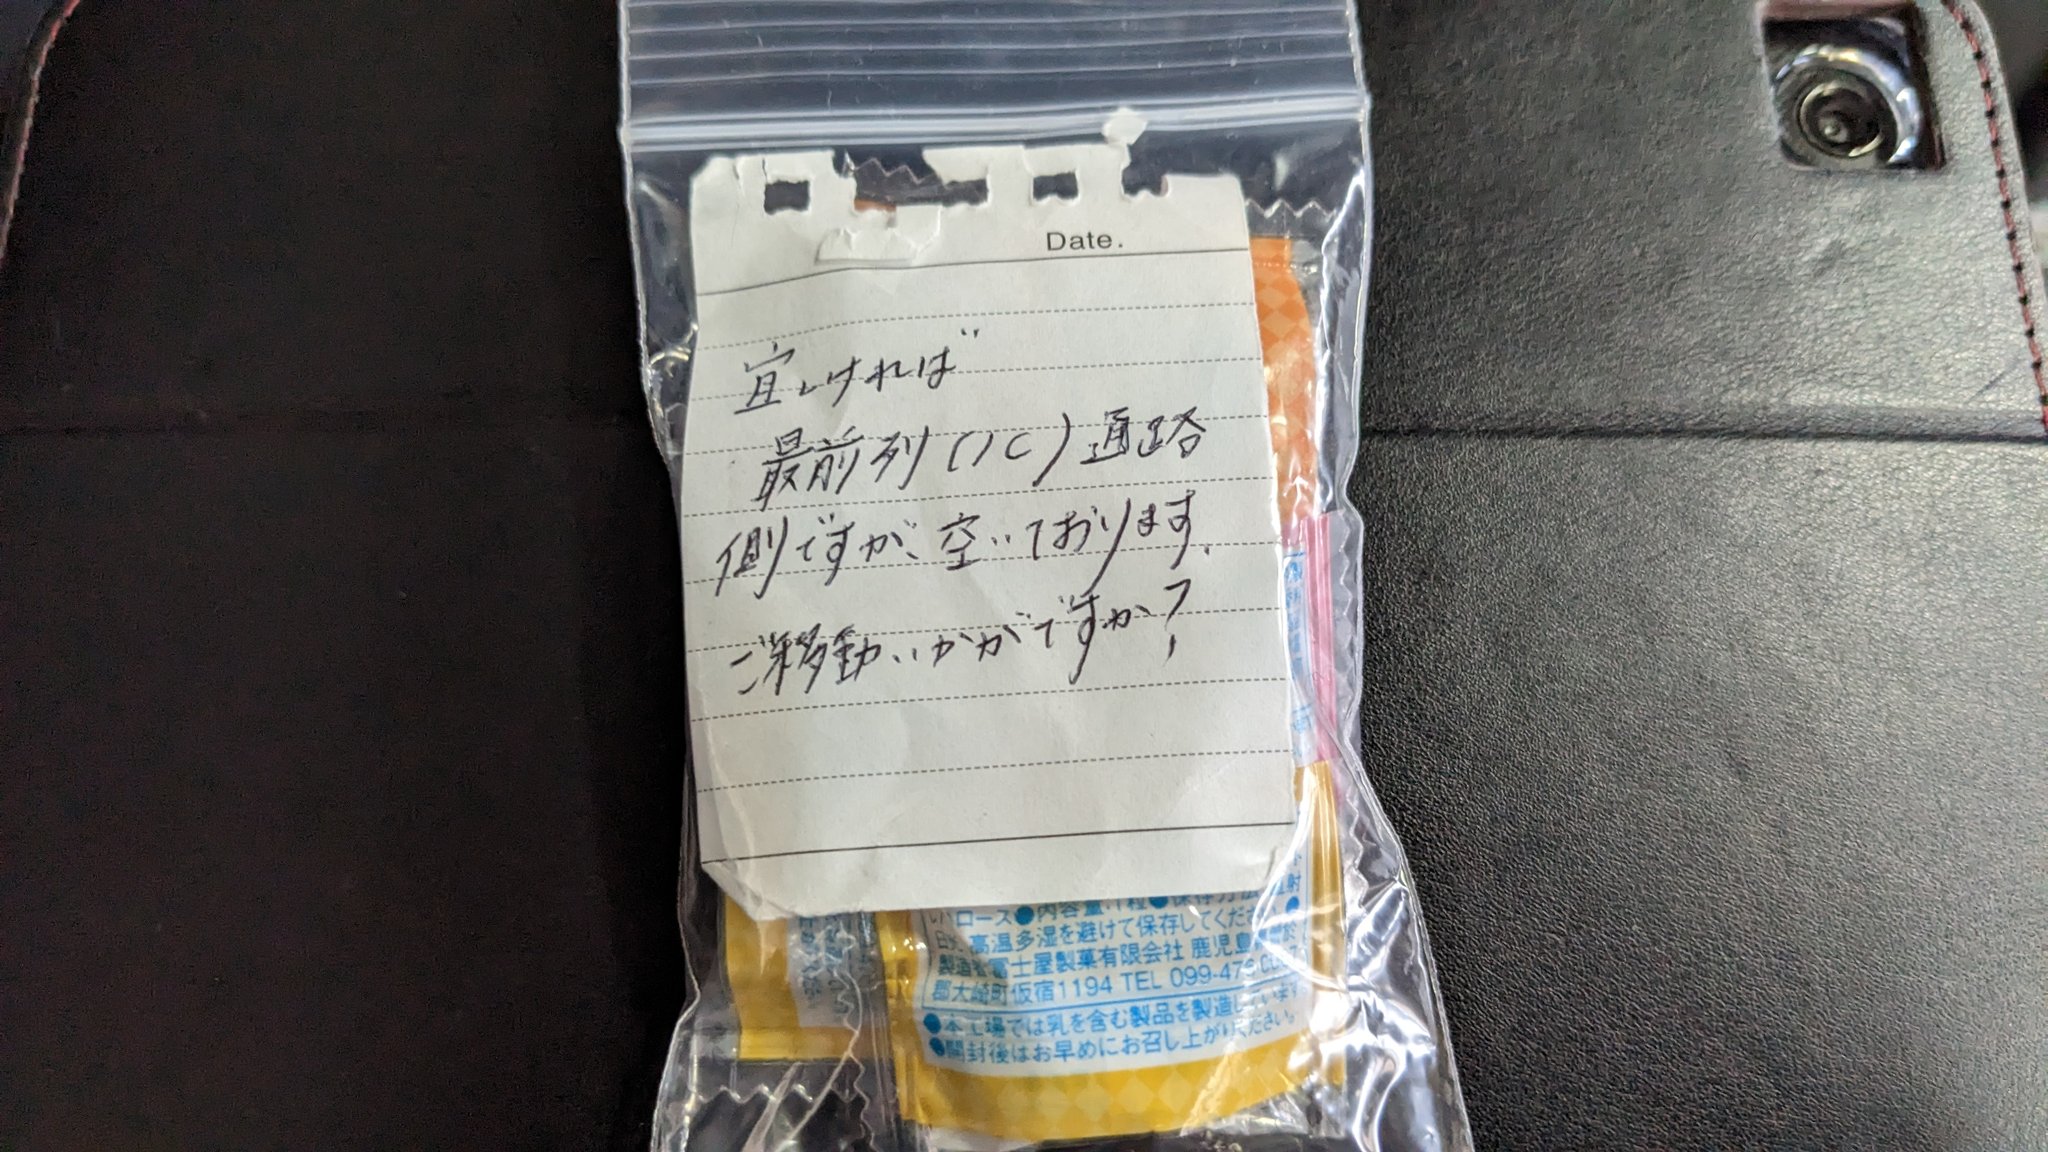 Date.
宜しければ
最前列(1C)通路
側ですが、空いております。
ご移動いかがですか?
ロース●内容量:1粒●保存方法
日光、高温多湿を避けて保存してください。●
製造者 冨士屋製菓有限会社 鹿児島
郡大崎町仮宿1194 TEL 099-476
●本工場では乳を含む製品を製造しています。
●開封後はお早めにお召し上がりください。